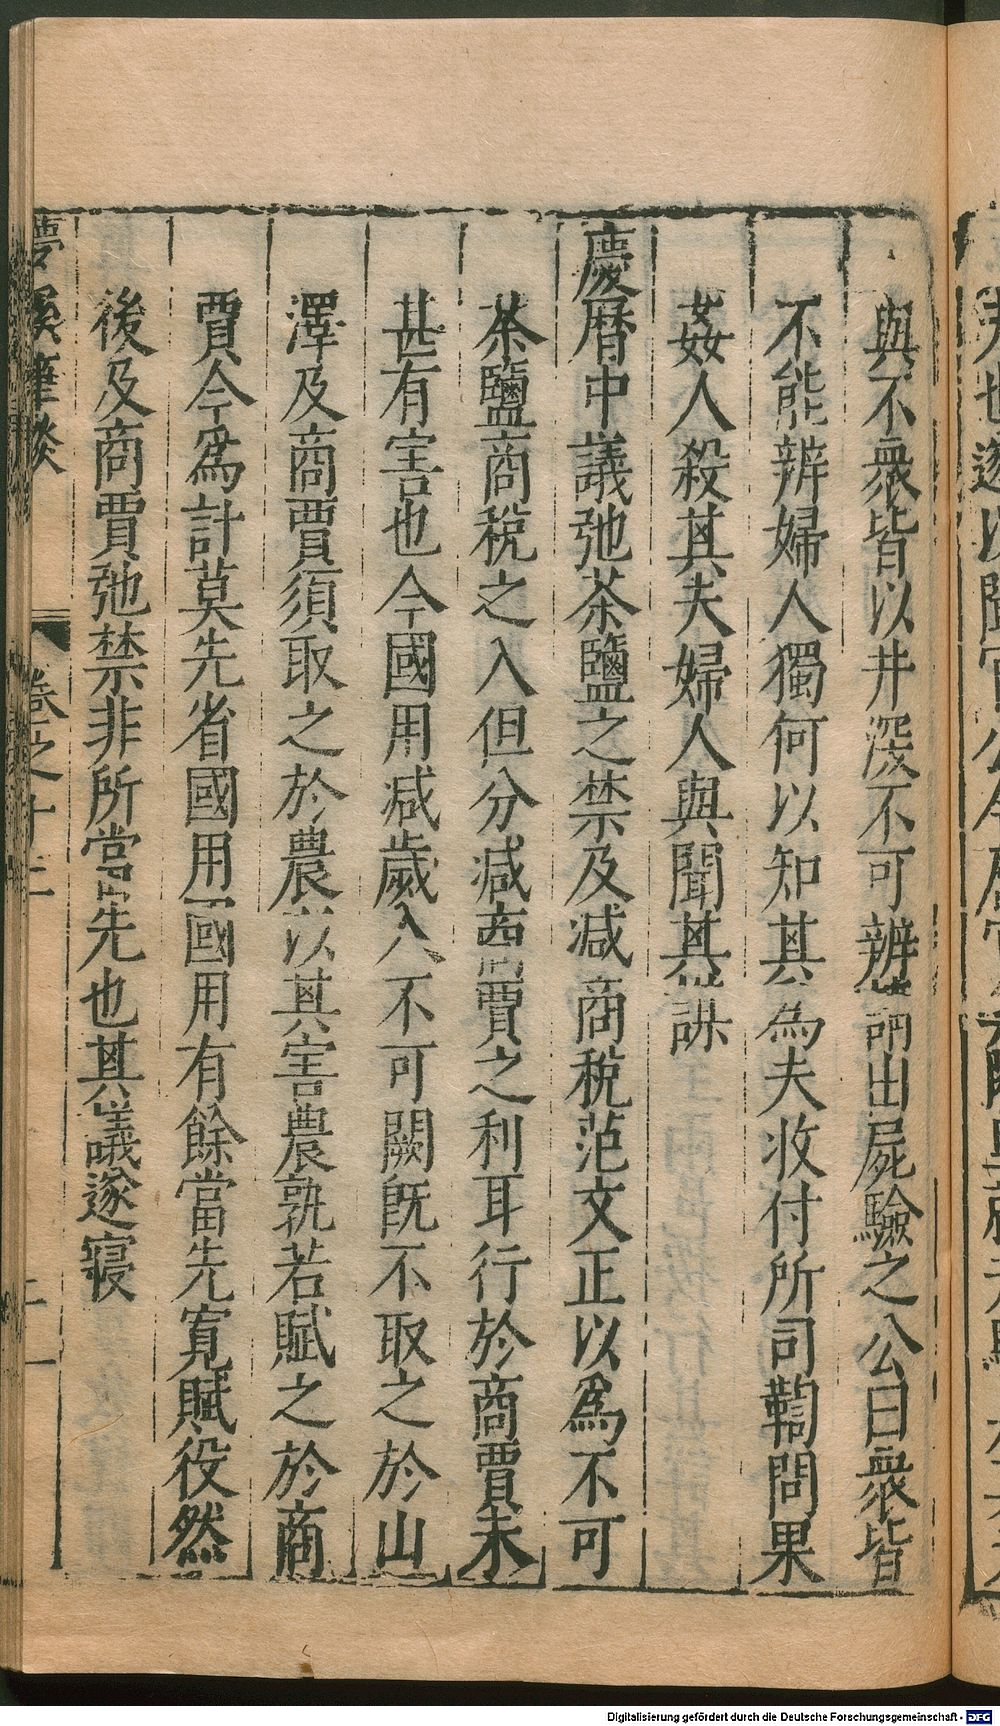 與不衆皆以井深不可辨請出屍驗之公曰衆皆
不能辨婦人獨何以知其為夫收付所司鞫問果
姦人殺其夫婦人與聞其謀
慶曆中議弛茶鹽之禁及減商稅范文正以為不可
茶鹽商稅之入但分減商賈之利耳行於商賈未
甚有害也今國用減歲入不可闕既不取之於山
澤及商賈須取之於農以其害農孰若賦之於商
賈今為計莫先省國用國用有餘當先寬賦役然
後及商賈弛禁非所當先也其議遂寢
夢溪筆談
卷之十二
Digitalisierung gefördert durch die Deutsche Forschungsgemeinschaft - DFG